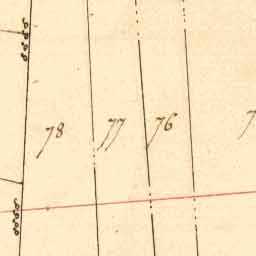 78 77 76 7